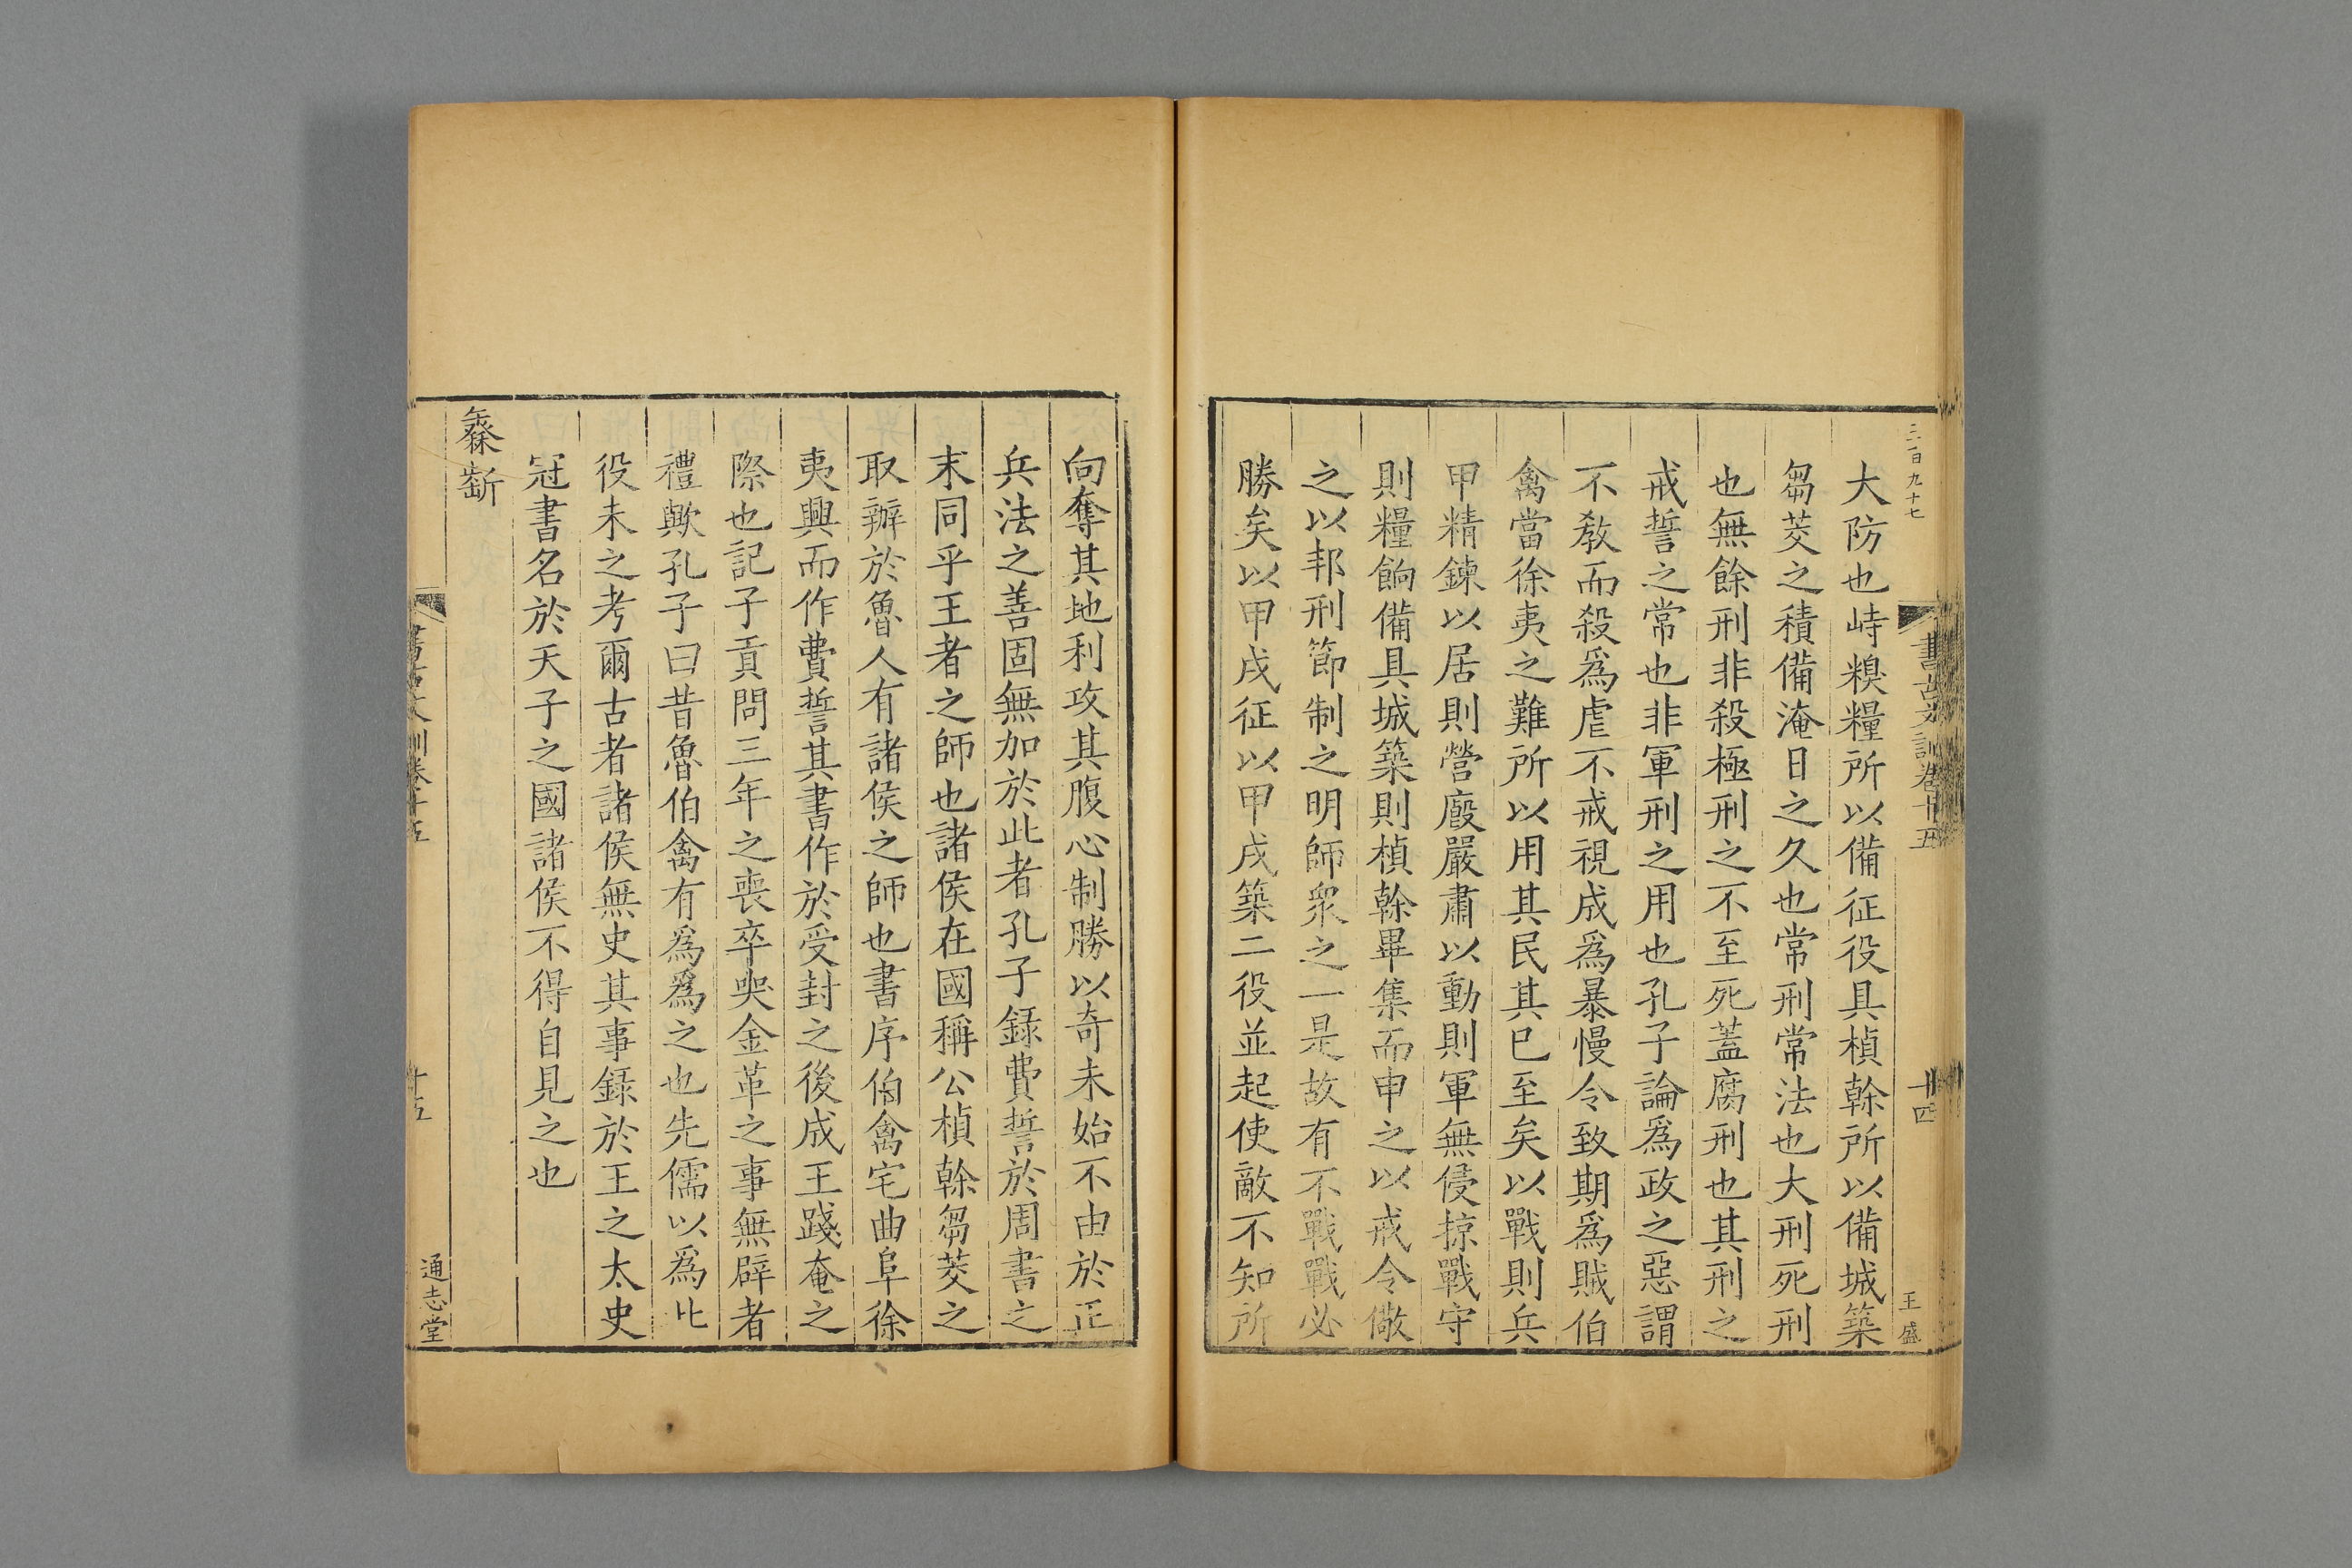 三百九十七
書古文訓卷十五
十四
王盛
大防也峙糗糧所以備征役具楨榦所以備城築
芻茭之積備淹日之久也常刑常法也大刑死刑
也無餘刑非殺極刑之不至死蓋腐刑也其刑之
戒誓之常也非軍刑之用也孔子論爲政之惡謂
不敎而殺爲虐不戒視成爲暴慢令致期爲賊伯
禽當徐夷之難所以用其民其巳至矣以戰則兵
甲精鍊以居則營廄嚴肅以動則軍無侵掠戰守
則糧餉備具城築則楨榦畢集而申之以戒令儆
之以邦刑節制之明師衆之一是故有不戰戰必
勝矣以甲戌征以甲戌築二役並起使敵不知所
向奪其地利攻其腹心制勝以奇未始不由於正
兵法之善固無加於此者孔子録費誓於周書之
末同乎王者之師也諸侯在國稱公楨榦芻茭之
取辦於魯人有諸侯之師也書序伯禽宅曲阜徐
夷興而作費誓其書作於受封之後成王踐奄之
際也記子貢問三年之喪卒哭金革之事無辟者
禮歟孔子曰昔魯伯禽有爲爲之也先儒以爲此
役未之考爾古者諸侯無史其事録於王之太史
冠書名於天子之國諸侯不得自見之也
書古文訓卷十五
十五
通志堂